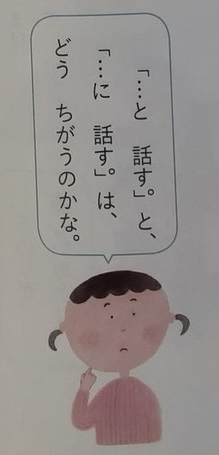 「…と　話す。」と、
「…に　話す。」は、
どう　ちがうのかな。